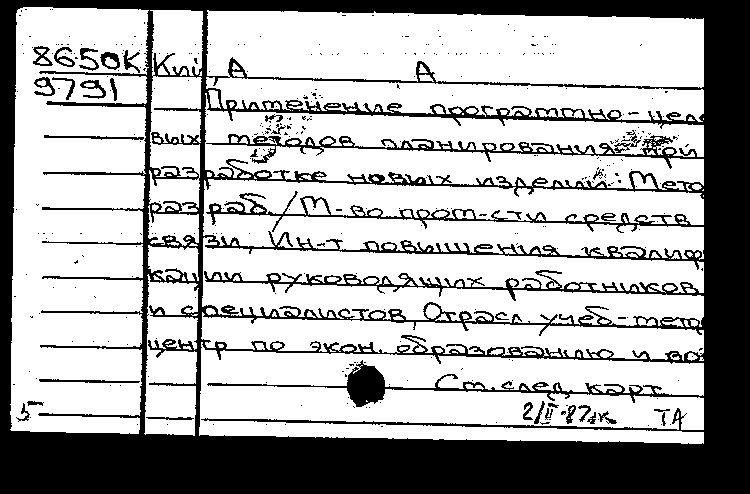 8650К Кпі А А
9791
Применение программно-целе
вых методов планирования при
разработке новых изделий: Мето
разраб. / М-во пром-сти средств
связи, Ин-т повышения квалифи
кации руководящих работников
и специалистов, Отрасл. учеб.-мето
центр по экон. образованию и во
См. след. карт.
5 2/II-87 ТА